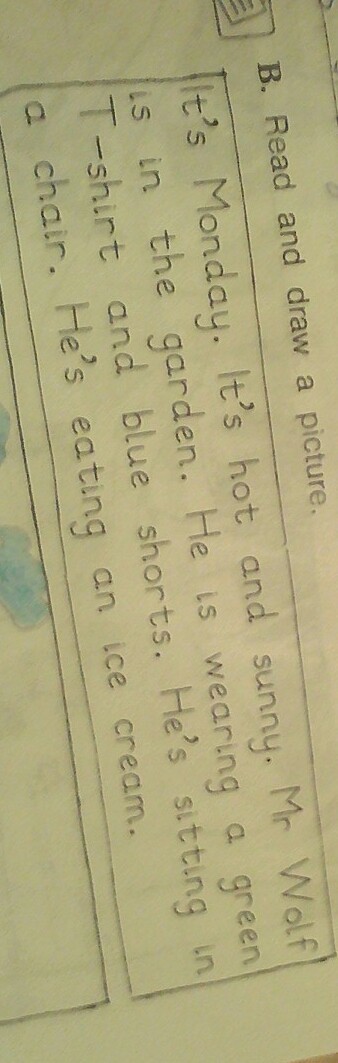 B. Read and draw a picture.
It's Monday. It's hot and sunny. Mr Wolf
is in the garden. He is wearing a green
T-shirt and blue shorts. He's sitting in
a chair. He's eating an ice cream.